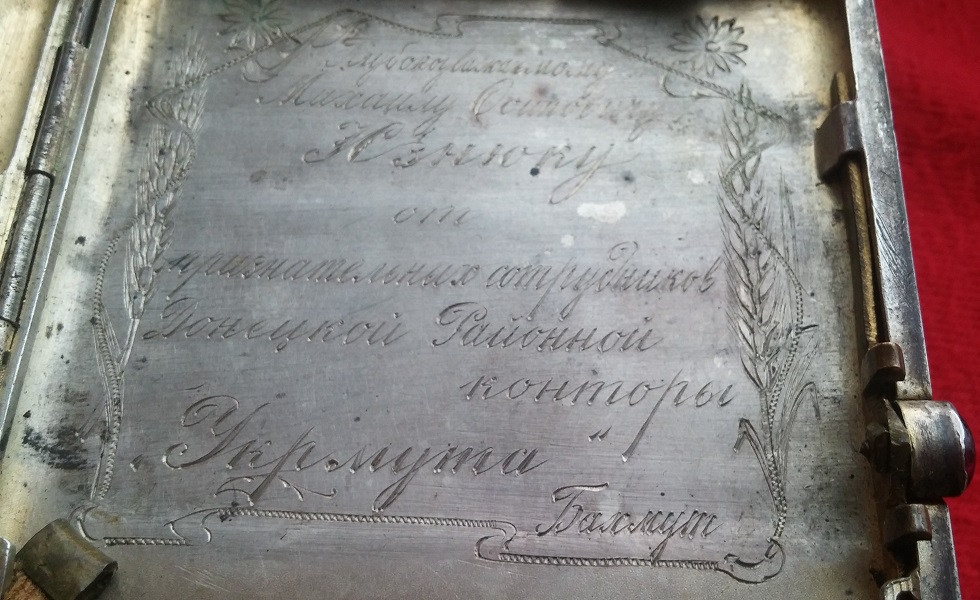 Глубокоуважаемому
Михаилу Осиповичу
от
признательных сотрудников
Донецкой Районной
конторы
„Укрмута"
Бахмут